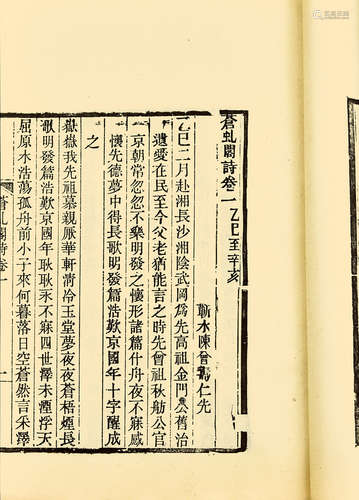 蒼虬閣詩卷一乙巳至辛亥
蘄水陳曾壽仁先
乙巳二月赴湘長沙湘陰武岡爲先高祖金門公舊治
遺愛在民至今父老猶能言之時先曾祖秋舫公官
京朝常忽忽不樂明發之懷形諸篇什舟夜不寐感
懷先德夢中得長歌明發篇浩歎京國年十字醒成
之
嶽嶽我先祖慕親厭華軒清冷玉堂夢夜夜蒼梧煙長
歌明發篇浩歎京國年耿耿永不寐四世澤未湮浮天
屈原水浩蕩孤舟前小子來何暮落日空蒼然言采澤
蒼虬閣詩卷一
一